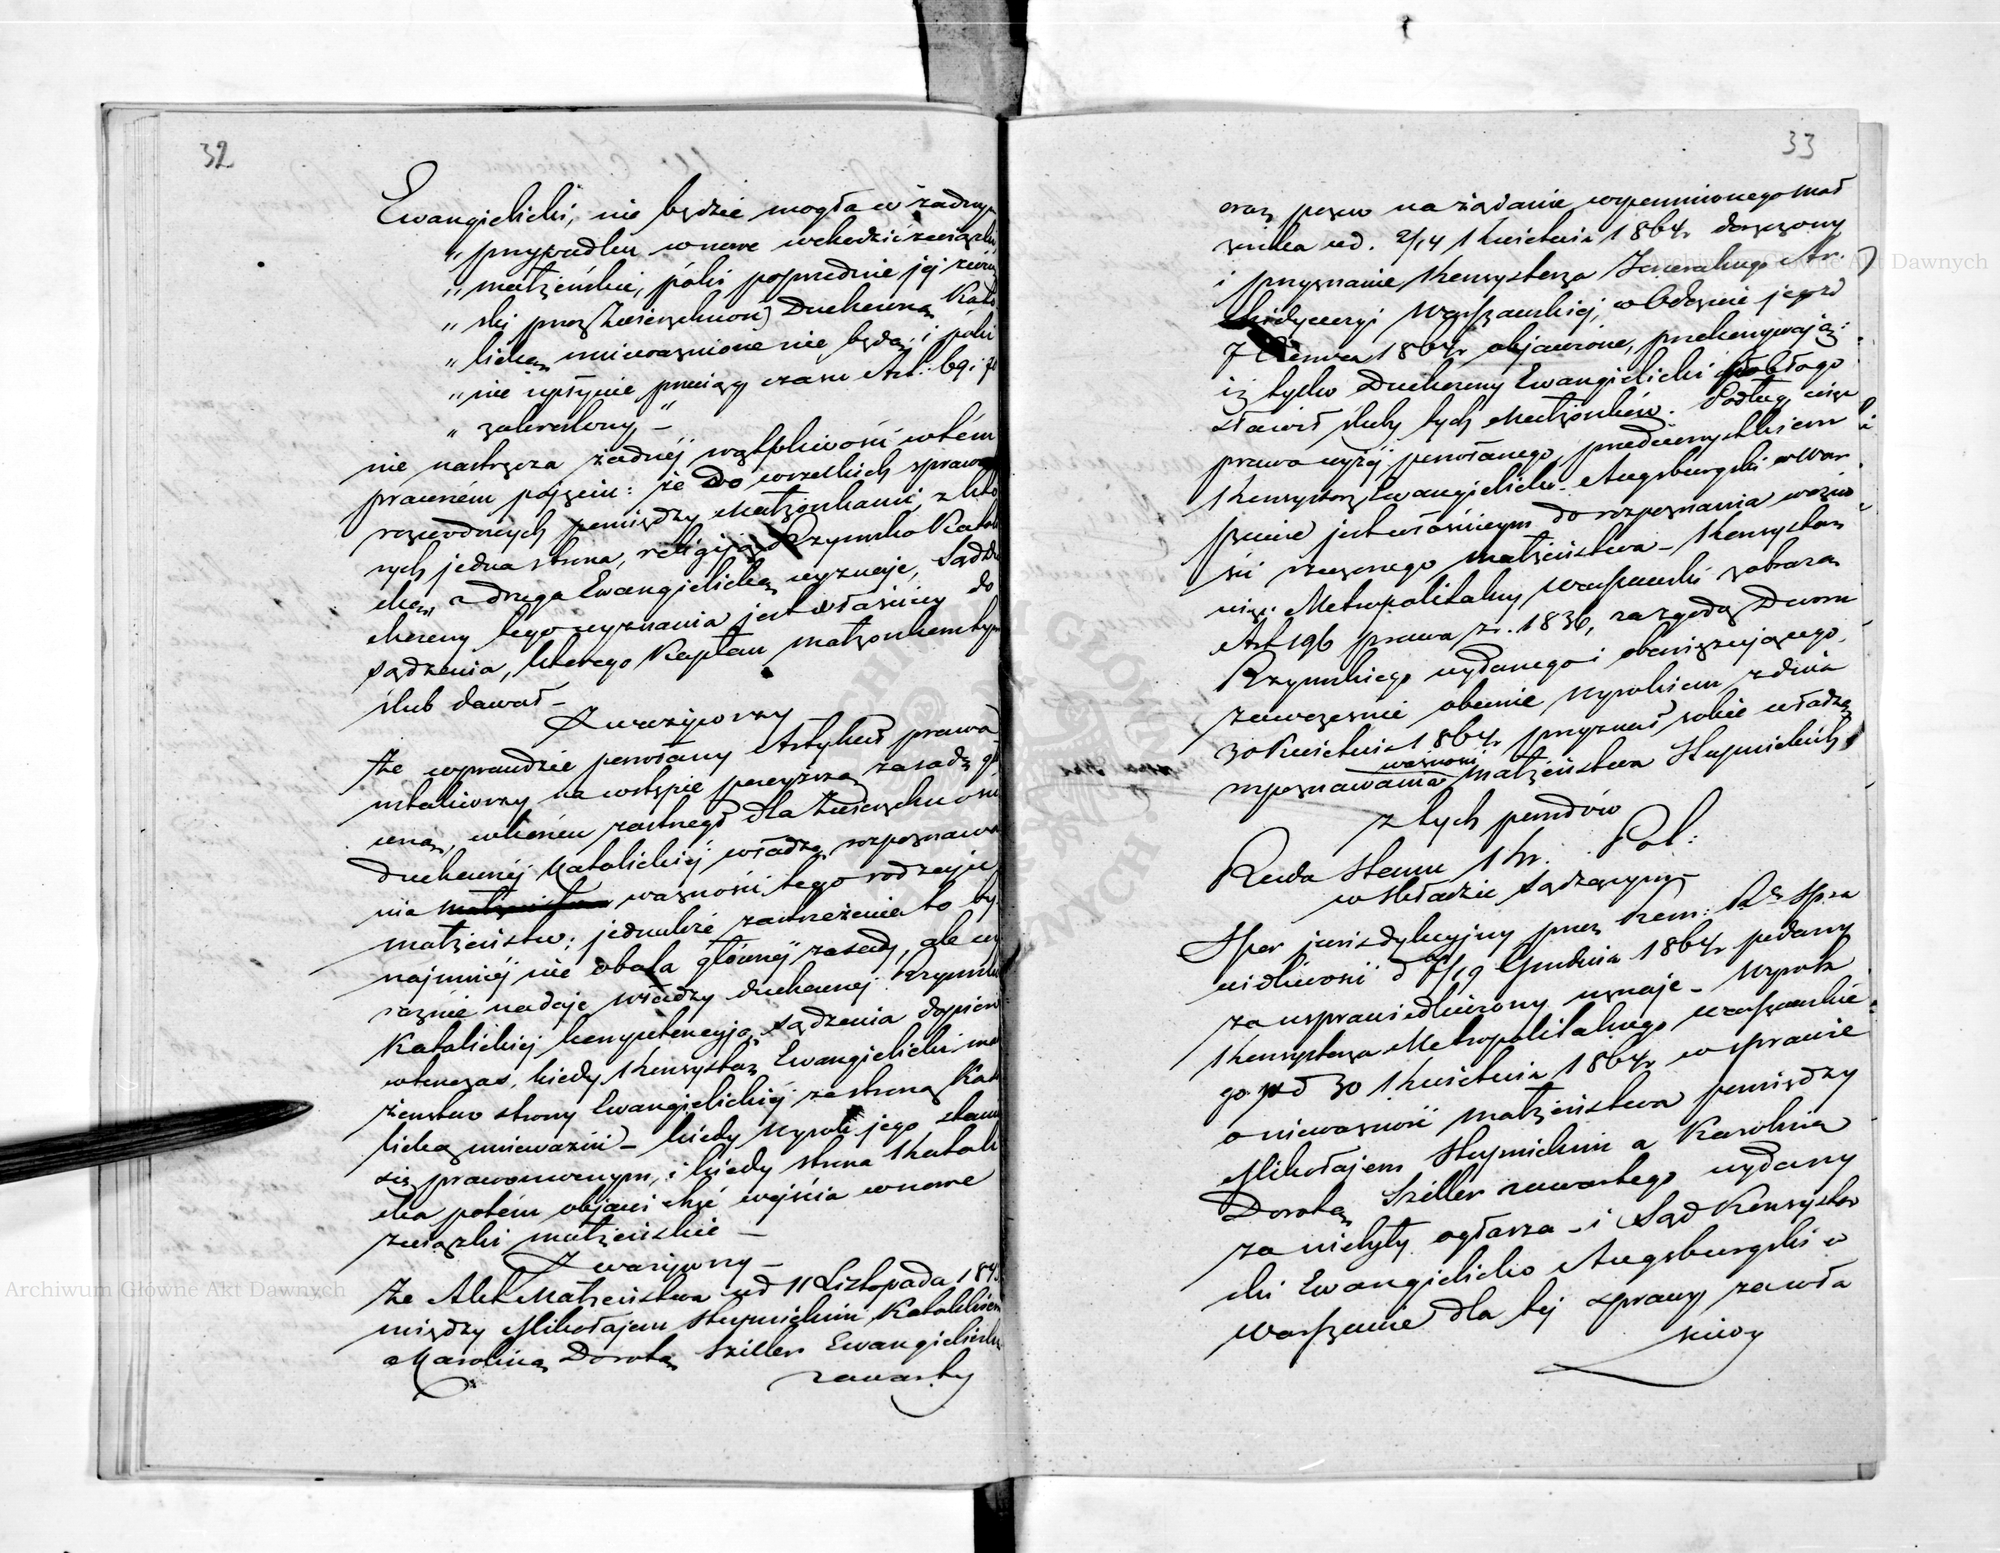 32
Ewangielicki, nie będzie mogła w żadnym
„ przypadku w nowe wchodzić związki
„ małżeńskie, póki poprzednie jej związ
„ ski przez Zwierzchność Duchowną Kato
„ licką unieważnione nie będą; i póki
„ nie upłynie przeciąg czasu Art: 69. 
„ zakreślony –"
nie nastręcza żadnéj wątpliwości w tém
prawném pojęciu: że do wszelkich spraw
rozwodnych pomiędzy Małżonkami, z któ
rych jedna strona, religiją Rzymsko Katoli
cką, a druga Ewangielicką wyznaje, Sąd Du
chowny tego wyznania jest właściwy do
sądzenia, którego Kapłan małżonkom tym
ślub dawał –
Zważywszy
Że wprawdzie powołany Artykuł prawa
ustaliwszy na wstępie powyższą zasadę 
wną, w końcu zastrzegł dla Zwierzchności
Duchownéj Katolickiéj władzę rozpoznawa
nia ważności tego rodzaju
małżeństw; jednakże zastrzeżenie to by
najmniéj nie obala głównéj zasady, ale wy
raźnie nadaje władzy duchownej Rzymsko
Katolickiej kompetencyją sądzenia dopiero
wtenczas, kiedy Konsystorz Ewangielicki mał
żeństwo strony Ewangielickiéj ze stroną Kato
licką unieważni – kiedy wyrok jego stanie
się prawomocnym, i kiedy strona Katoli
cka potém objawi chęć wejścia w nowe
związki małżeńskie –
Zważywszy –
Że Akt Małżeństwa od 11 Listopada 184
między Mikołajem Słupnickim, Katolikiem
a Karoliną Dorotą Sziller Ewangieliczką
zawarty
33
oraz pozew na żądanie wspomnionego Mał
żonka od. 2/14 Kwietnia 1864r doręczony
i przyznanie Konsystorza Jeneralnego Ar.
chidyecezyi Warszawskiej, w Odezwie jego z d
7 Czerwca 1864r objawione, przekonywają:
iż tylko Duchowny Ewangielicki pobłogo
sławił śluby tych Małżonków. Podług więc
prawa wyżéj powołanego, przedewszystkiem
Konsystorz Ewangielicko-Augsburgski w War
szawie jest właściwym do rozpoznania ważno
ści rzeczonego małżeństwa – Konsystorz
więc Metropolitalny Warszawski z obrazą
Art 196 prawa z r. 1836, za zgodą Dworu
Rzymskiego wydanego i obowiązującego,
zawcześnie obecnie, wyrokiem z dnia
30 Kwietnia 1864r przyznał sobie władzę
rozpoznawania ważności małżeństwa Słupnickich
z tych powodów
Rada Stanu Kr. Pol:
w składzie sądzącym –
Spor jurisdykcyjny przez Kom: Rz. Spra
wiedliwości d 7/19 Grudnia 1864r podany
za usprawiedliwiony uznaje – Wyrok
Konsystorza Metropolitalnego Warszawskie
go z d 30 Kwietnia 1864r w sprawie
o nieważność małżeństwa pomiędzy
Mikołajem Słupnickim a Karoliną
Dorotą Sziller zawartego wydany
za niebyły ogłasza – i Sąd Konsystor
ski Ewangielicko Augsburgski w
Warszawie dla tej sprawy za wła
ściwy
Archiwum Główne Akt Dawnych
Archiwum Główne Akt Dawnych